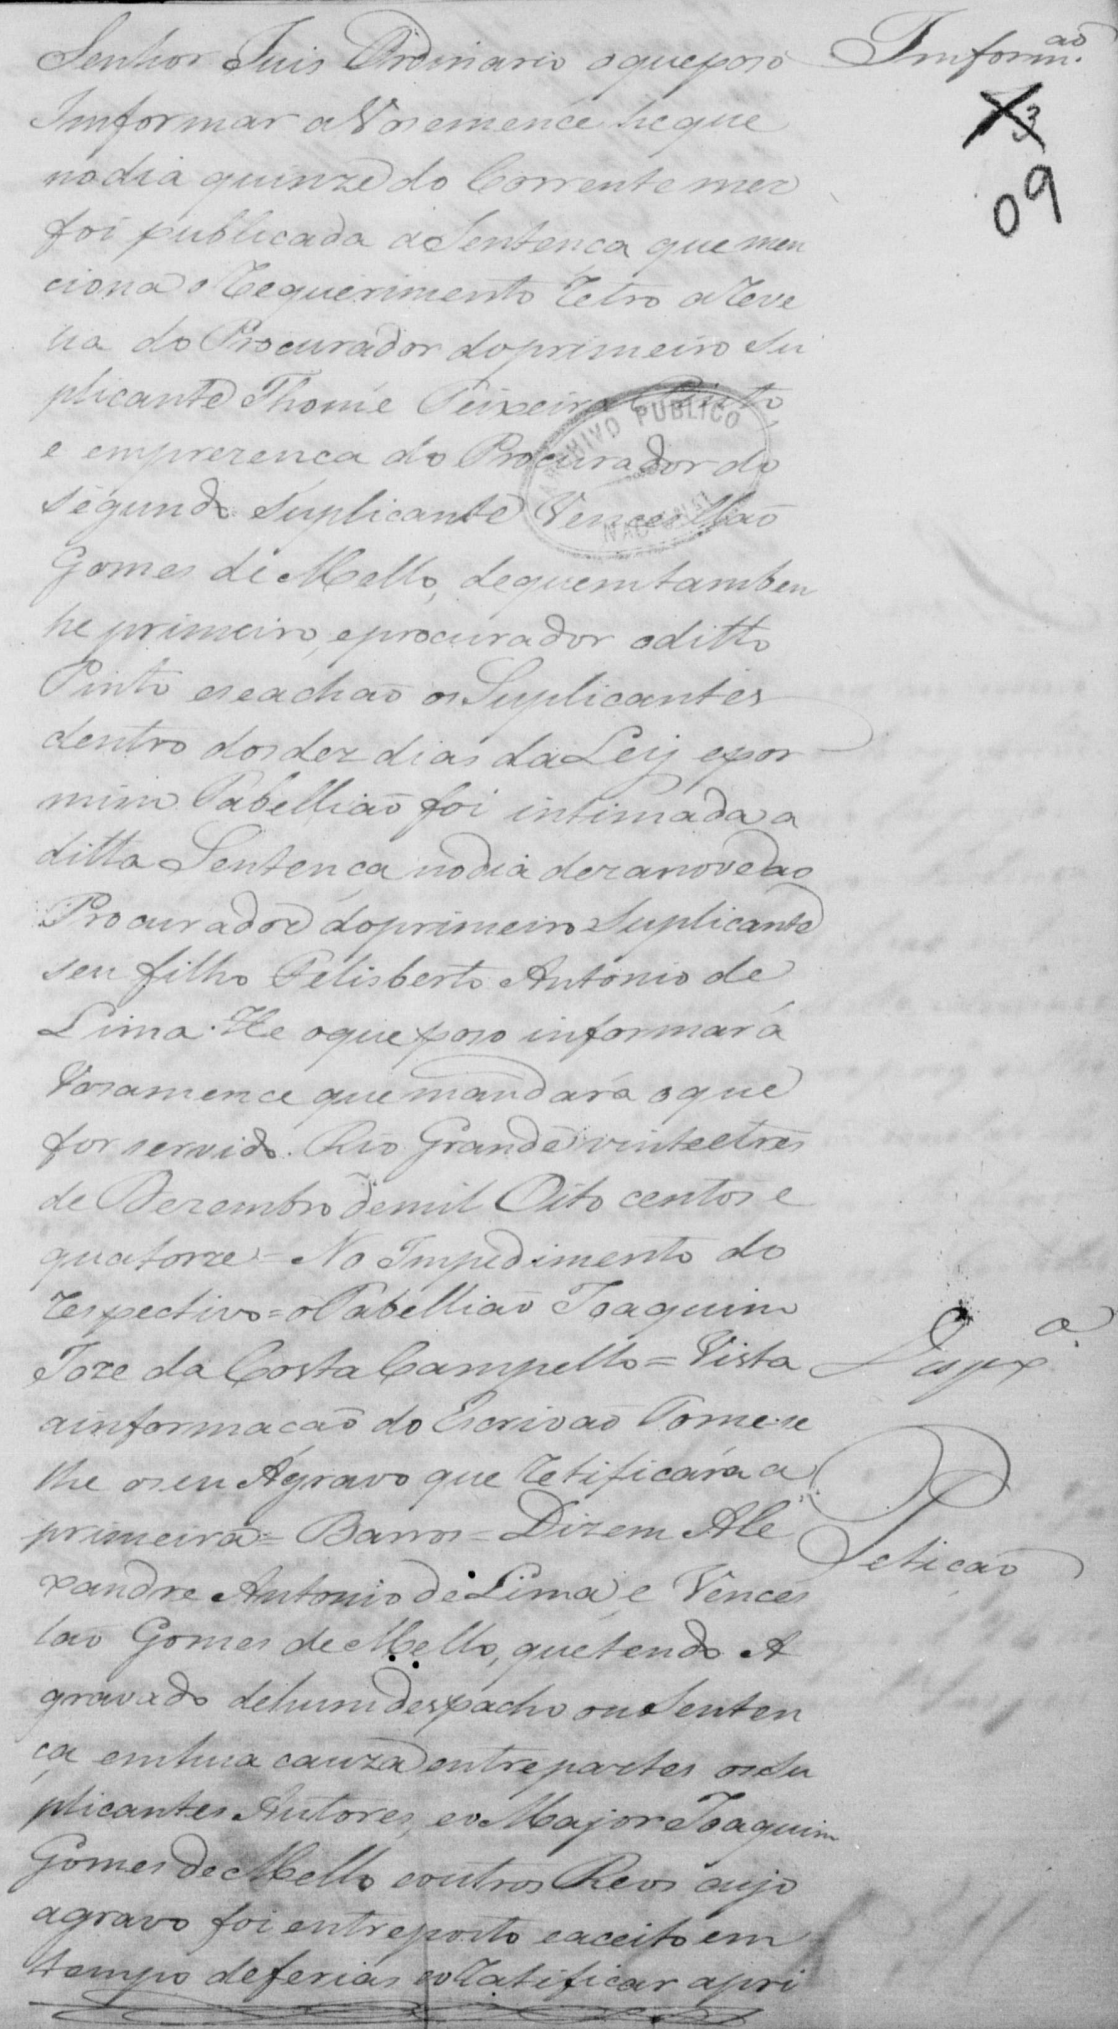 Senhor Juis Ordinario oqueposo
Imformar aVosemence heque
nodia quinze do Corrente mez
foi publicada aSentença que men
ciona o Requerimento Retro aReve
lia do Procurador doprimeiro Su
plicante Thomé Teixeira Pinto
e emprezença do Procurador do
segundo Suplicante Venceslao
Gomes de Mello, dequemtambem
he primeiro, eprocurador oditto
Pinto eseachaõ osSuplicantes
dentro dosdez dias daLeij epor
mim Tabelliaõ foi intimada a
ditta Sentença nodia dezanove ao
Procurador doprimeiro Suplicante
seu filho Felisberto Antonio de
Lima. He oque poso informar á
Vosamence que mandará oque
for servido. Rio Grande vinteetres
de Dezembro demil Oito centos e
quatorze = No Impedimento do
Respectivo = oTabelliaõ Joaquim
Joze da Costa Campello = Vista
ainformacaõ do Escrivaõ Tome-se
lhe oseu Agravo que Retificará a
primeira = Barros = Dizem Ale
xandre Antonio de Lima, e Vences
lao Gomes de Mello, quetendo A
gravado dehum despacho ou Senten
ça emhua cauza entrepartes osSu
plicantes Autores, eo Major Joaquim
Gomes de Mello eoutros Reos cujo
agravo foi entreposto eaceito em
tempo deferias eoRatificar apri
Imform.ao
3
09
Desp.o
Petiçaõ
ARCHIVO PUBLICO
NACIONAL